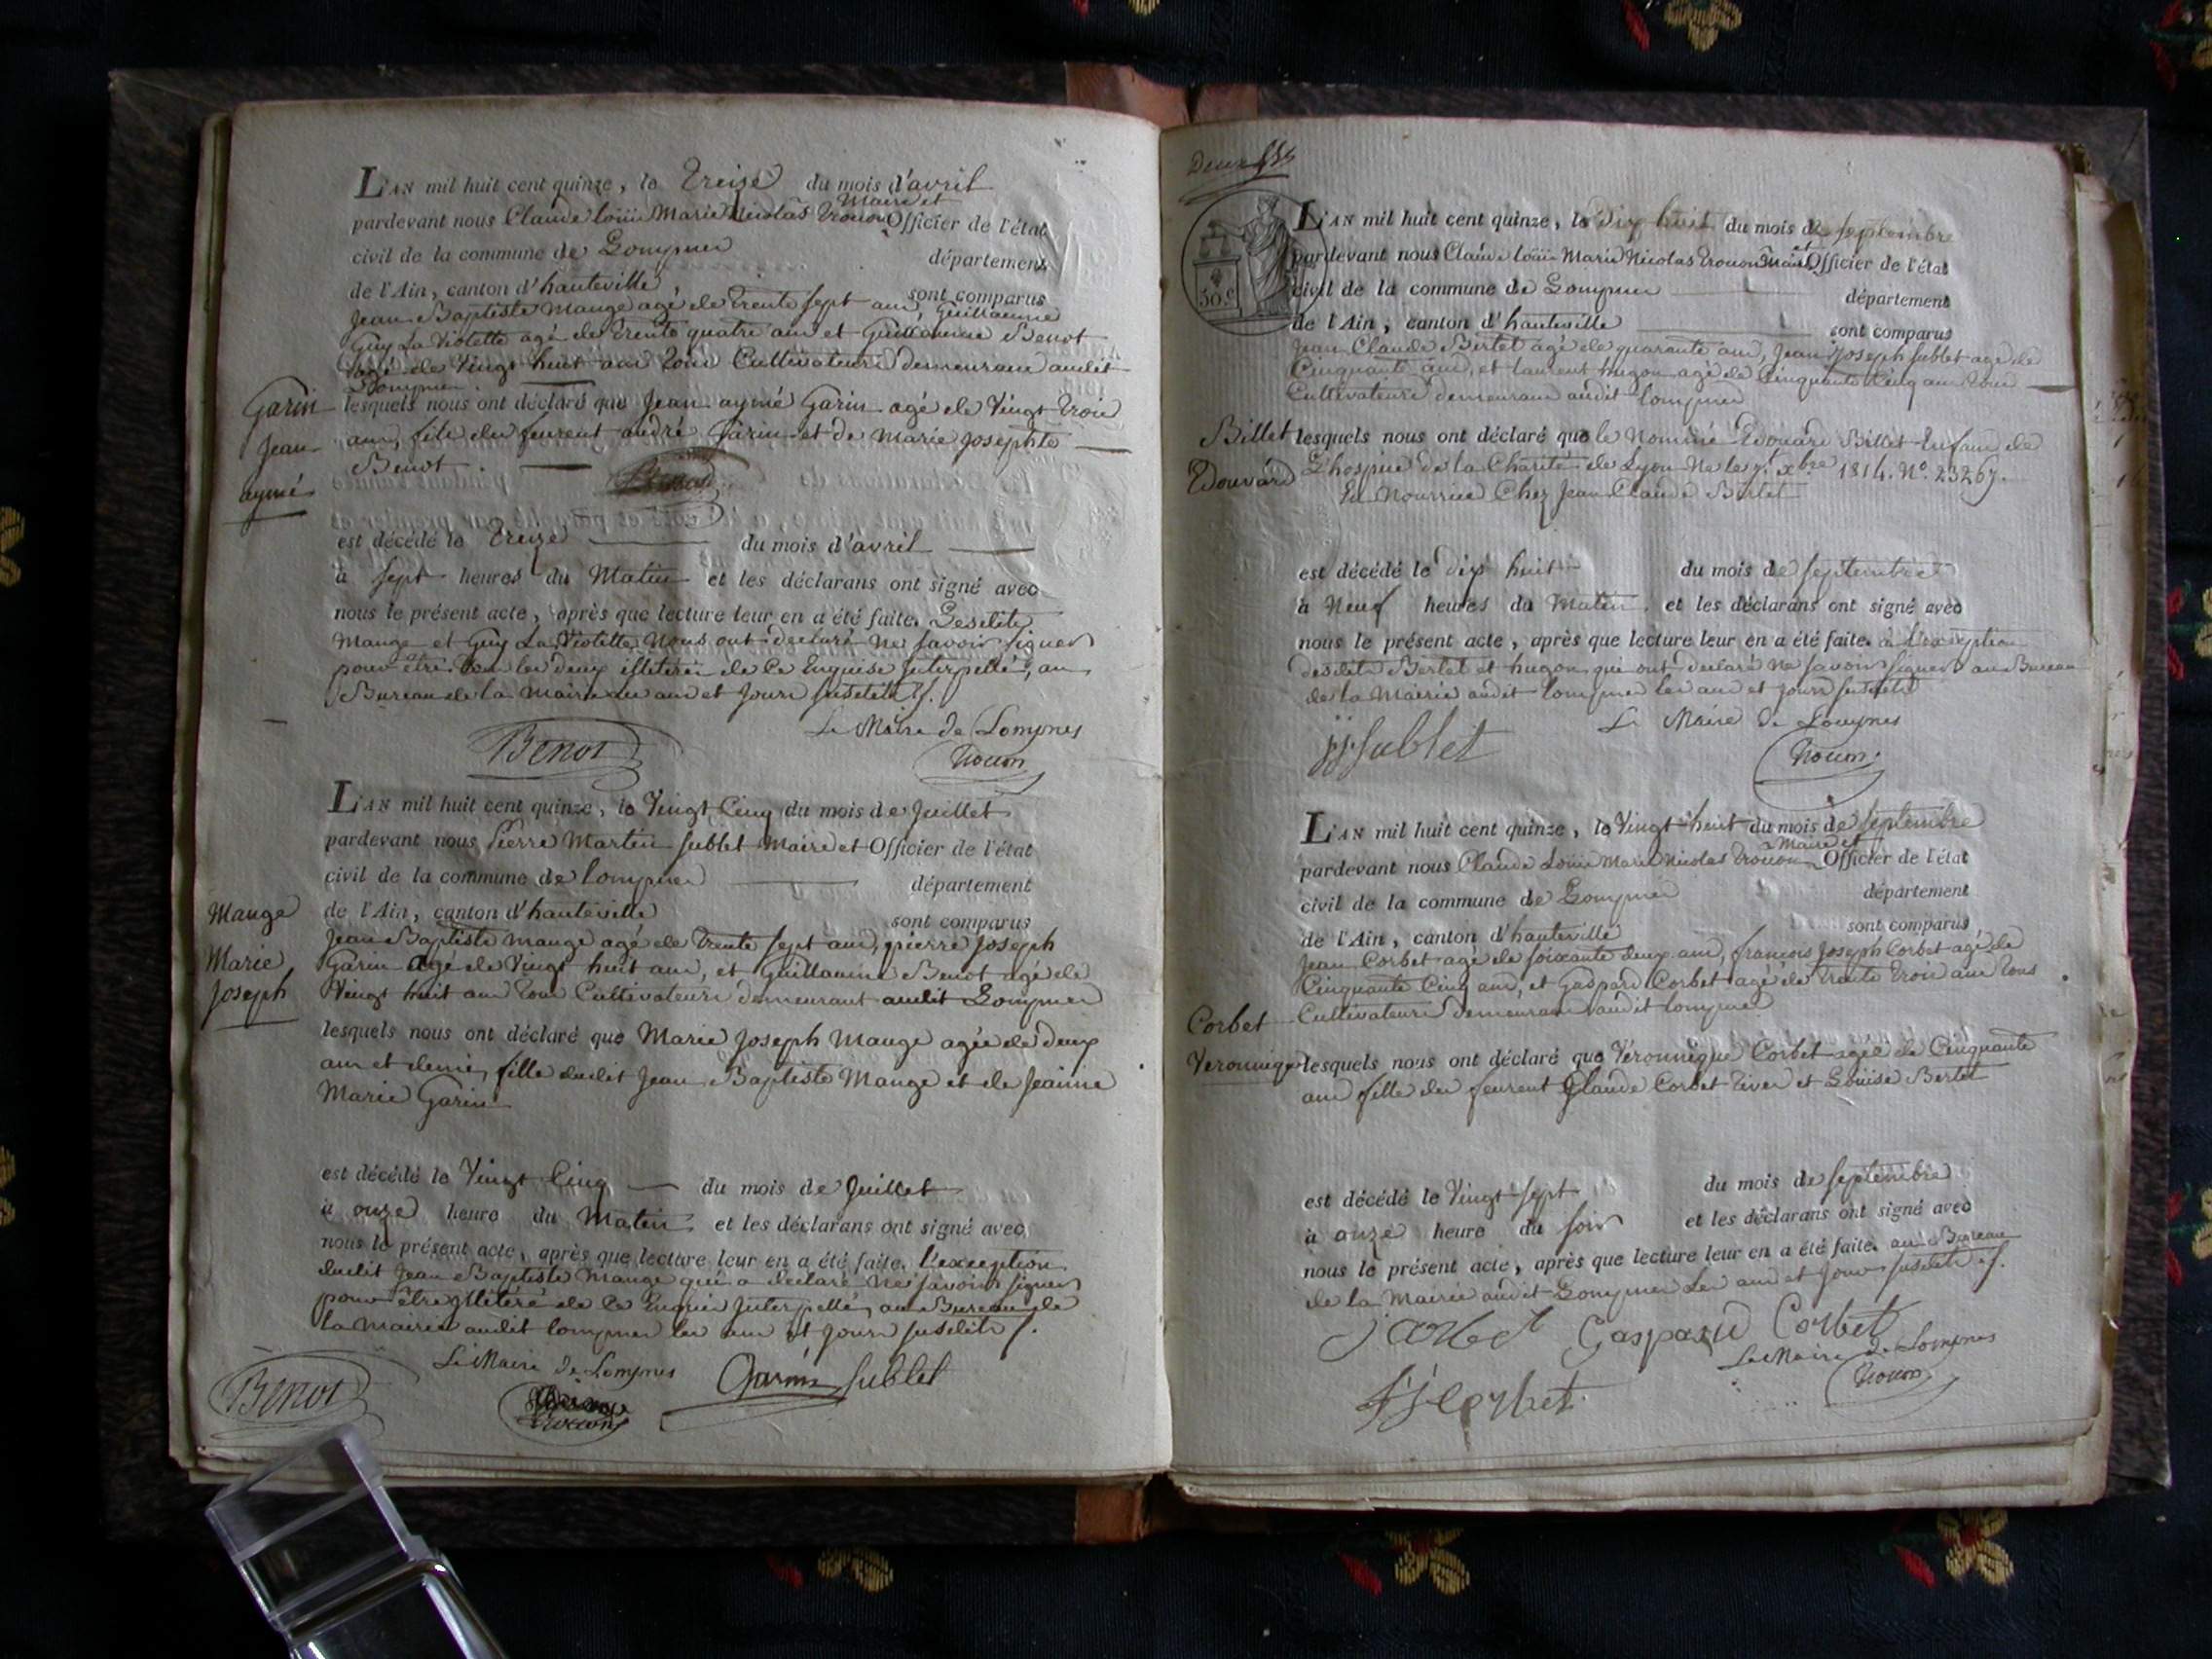 L'AN mil huit cent quinze, le Treize du mois d'avril
Maire et
pardevant nous Claude Louis Marie Nicolas Trocon Officier de l'état
civil de la commune de Lompnes département
de l'Ain, canton d'hauteville sont comparus
Jean Baptiste Mange agé de trente sept ans, Guillaume
Guy La Violette agé de trente quatre ans et Guillaume Benot
agé de Vingt huit ans tous Cultivateurs demeurans audit
Lompnes.
Garin
Jean
aymé
lesquels nous ont déclaré que Jean aymé Garin agé de Vingt trois
ans, fils du feu andré Garin et de Marie Josephte
Benot.
Benot
est décédé le Treize du mois d'avril
à sept heures du Matin et les déclarans ont signé avec
nous le présent acte, après que lecture leur en a été faite. Lesdits
Mange et Guy La Violette Nous ont declaré Ne savoir signer
pour être tous les deux illiterés de ce Enquise Interpellés, au
Bureau de la Mairie les an et Jours susdits
Benot
Le Maire de Lompnes
Trocon
L'AN mil huit cent quinze, le Vingt Cinq du mois de Juillet
pardevant nous Pierre Martin Sublet Maire et Officier de l'état
civil de la commune de Lompnes département
de l'Ain, canton d'hauteville sont comparus
Mange
Marie
Joseph
Jean Baptiste Mange agé de trente sept ans, pierre Joseph
Garin agé de Vingt huit ans, et Guillaume Benot agé de
Vingt huit ans tous Cultivateurs demeurant audit Lompnes
lesquels nous ont déclaré que Marie Joseph Mange agée de deux
ans et demie, fille dudit Jean Baptiste Mange et de Jeanne
Marie Garin
est décédé le Vingt Cinq du mois de Juillet
à onze heure du Matin, et les déclarans ont signé avec
nous le présent acte, après que lecture leur en a été faite. l'exception
dudit Jean Baptiste Mange qui a declaré Ne savoir signer
pour être illiteré de ce Enquis Interpellé, au Bureau de
la Mairie audit Lompnes les an et Jours susdits
Le Maire de Lompnes
Benot
Trocon
Garin
Sublet
Deux
50 c
L'AN mil huit cent quinze, le dix huit du mois de septembre
pardevant nous Claude Louis Marie Nicolas Trocon Maire et Officier de l'état
civil de la commune de Lompnes département
de l'Ain, canton d'hauteville sont comparus
Jean Claude Bertet agé de quarante ans, Jean Joseph Sublet agé de
Cinquante ans, et laurent hugon agé de Cinquante Cinq ans tous
Cultivateurs demeurans audit Lompnes
Billet
Edouard
lesquels nous ont déclaré que le Nommé Edouard Billet Enfant de
L'hospice de la Charité de Lyon Ne le 7 xbre 1814. No. 23267.
En Nourrice Chez Jean Claude Bertet
est décédé le dix huit du mois de septembre
à Neuf heures du Matin, et les déclarans ont signé avec
nous le présent acte, après que lecture leur en a été faite. à l'exception
desdits Bertet et hugon qui ont declaré Ne savoir signer au Bureau
de la Mairie audit Lompnes les an et jours susdits
jjSublet
Le Maire de Lompnes
Trocon
L'AN mil huit cent quinze, le Vingt huit du mois de septembre
Maire et
pardevant nous Claude Louis Marie Nicolas Trocon Officier de l'état
civil de la commune de Lompnes département
de l'Ain, canton d'hauteville sont comparus
Jean Corbet agé de soixante deux ans, francois Joseph Corbet agé de
Cinquante Cinq ans, et Gaspard Corbet agé de trente trois ans tous
Cultivateurs demeurans audit Lompnes
Corbet
Veronnique
lesquels nous ont déclaré que Veronnique Corbet agée de Cinquante
ans fille du feu Claude Corbet et Louise Bertet
est décédé le Vingt sept du mois de septembre
à onze heure du soir et les déclarans ont signé avec
nous le présent acte, après que lecture leur en a été faite. au Bureau
de la Mairie audit Lompnes Les an et Jours susdits
j corbet Gaspard Corbet
Le Maire de Lompnes
Trocon
fjcorbet